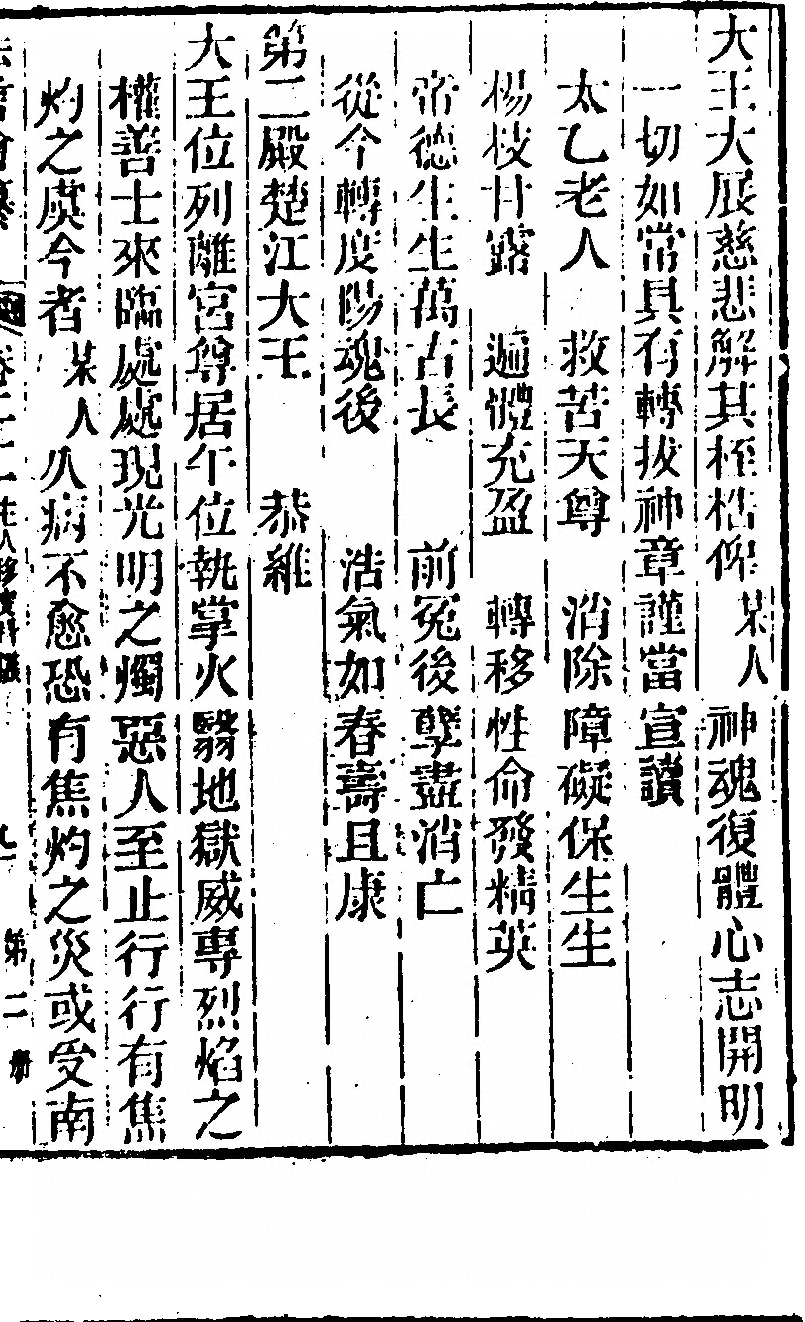 大王大展慈悲解其桎梏俾某人神魂復體心志開明
一切如常具有轉拔神章謹當宣讀
太乙老人　救苦天尊　消除障礙保生生
楊枝甘露　遍體充盈　轉移性命發精英
帝德生生萬古長　前冤後孽盡消亡
從今轉度陽魂後　浩氣如春壽且康
第二殿楚江大王　恭維
大王位列離宮尊居午位執掌火翳地獄威專烈焰之
權善士來臨處處現光明之燭惡人至止行行有焦
灼之虞今者某人久病不愈恐有焦灼之災或受南
卷二十二生人移度科儀　九一　第二冊